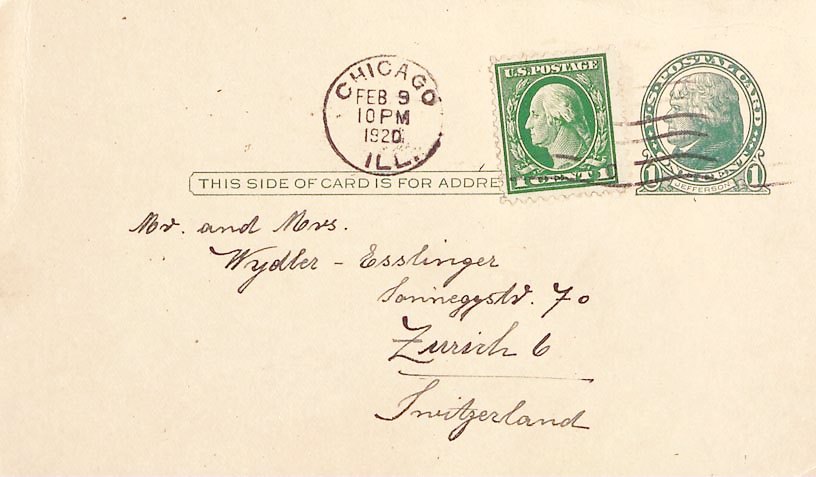 CHICAGO
FEB 9
10 PM
1920
ILL.
U.S. POSTAGE
1 CENT 1
U.S. POSTAL CARD
1 JEFFERSON 1
THIS SIDE OF CARD IS FOR ADDRE
Mr. and Mrs.
Wydler - Esslinger
Sonneggstr. 70
Zurich 6
Switzerland